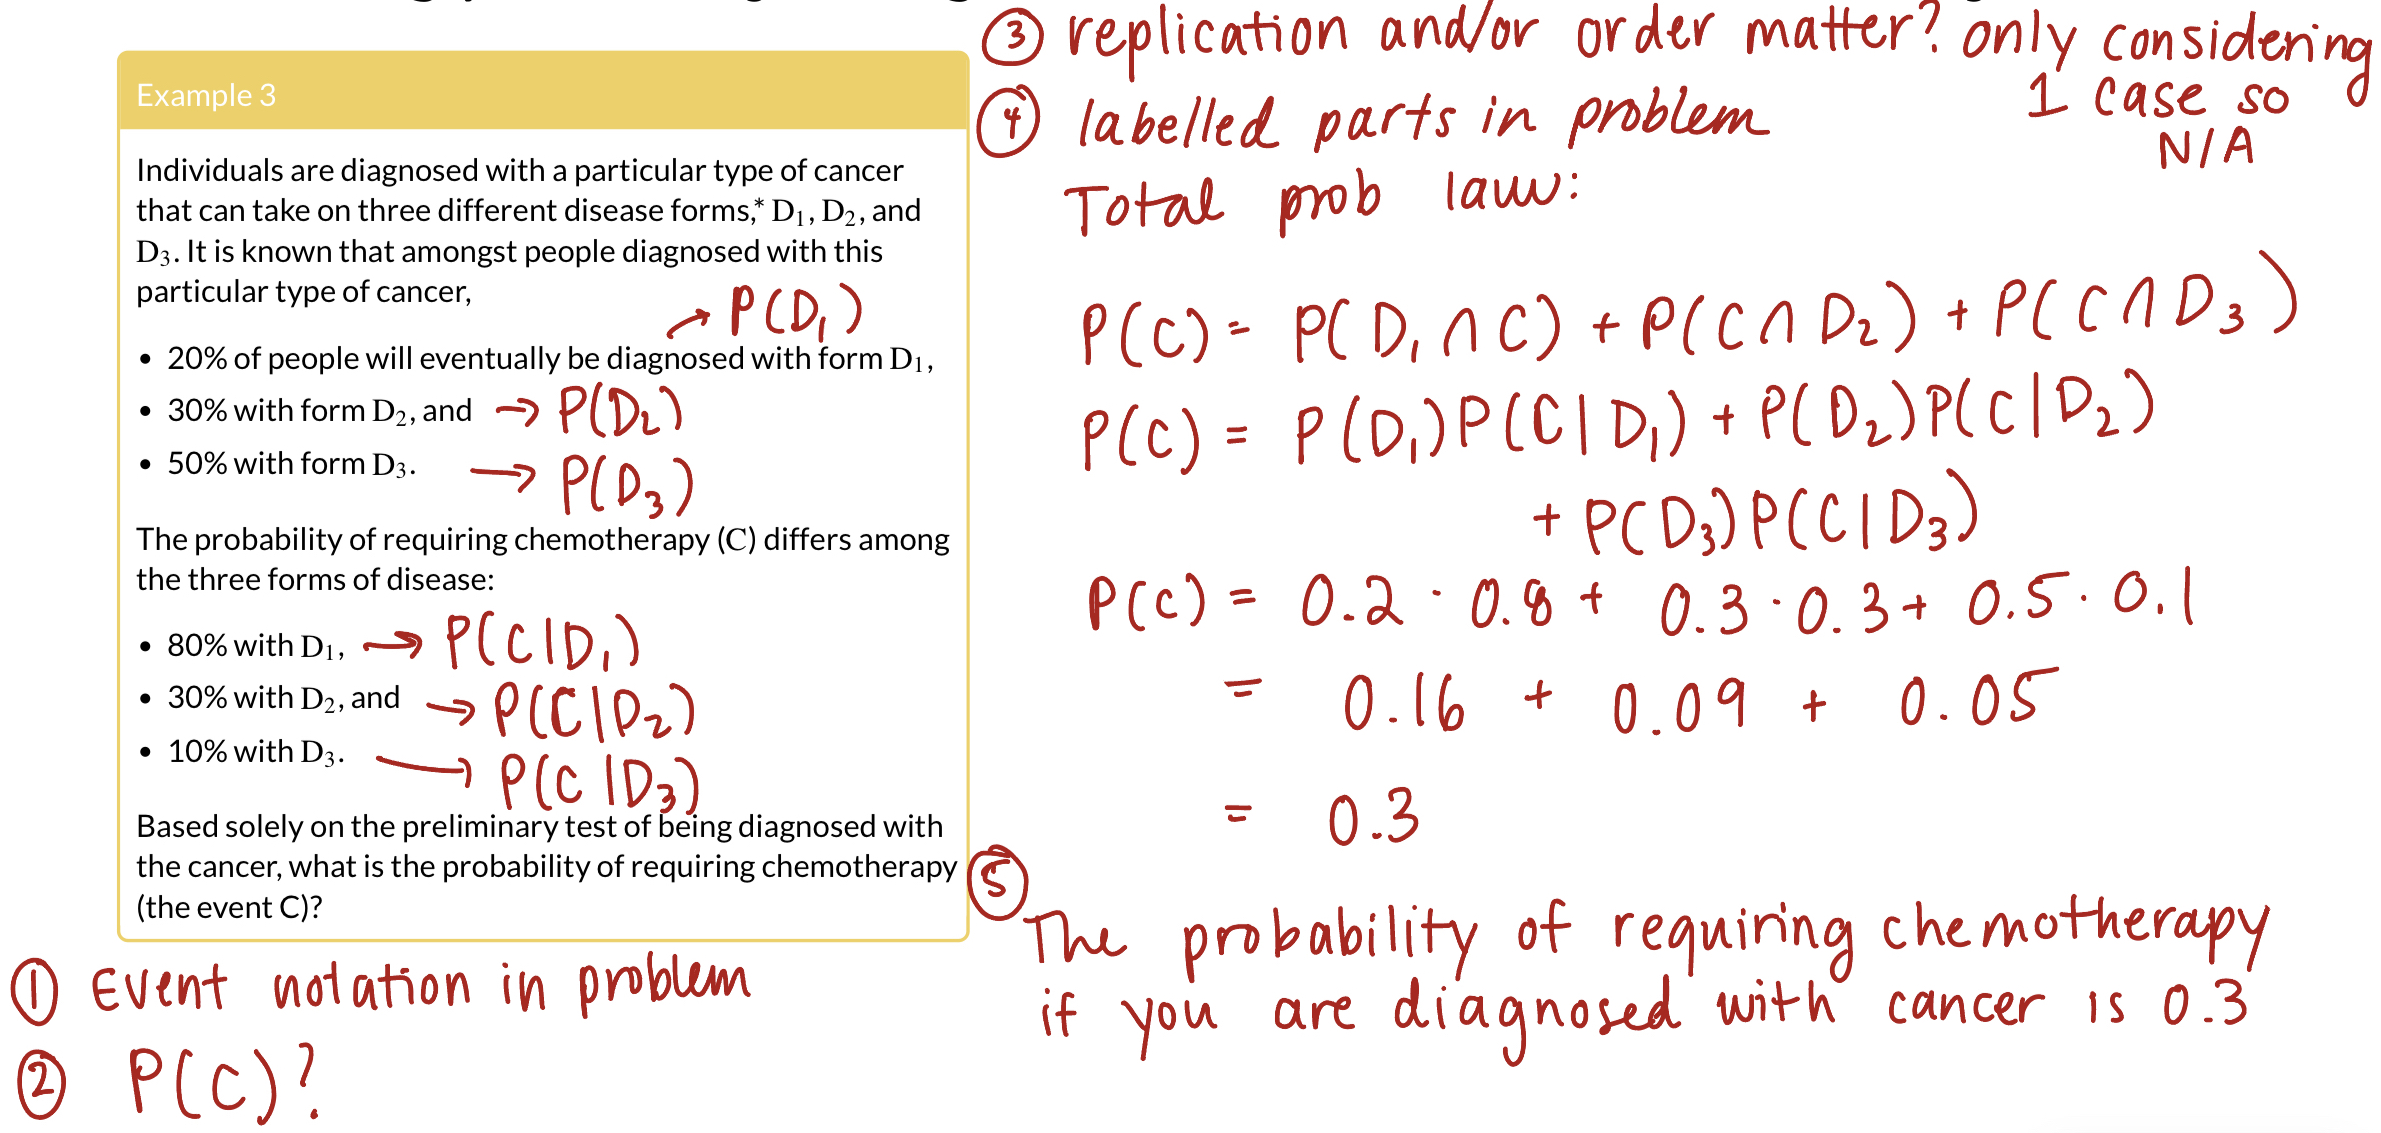 Example 3
Individuals are diagnosed with a particular type of cancer
that can take on three different disease forms,* D₁, D₂, and
D₃. It is known that amongst people diagnosed with this
particular type of cancer,
→ P(D₁)
• 20% of people will eventually be diagnosed with form D₁,
• 30% with form D₂, and → P(D₂)
• 50% with form D₃. → P(D₃)
The probability of requiring chemotherapy (C) differs among
the three forms of disease:
• 80% with D₁, → P(C|D₁)
• 30% with D₂, and → P(C|D₂)
• 10% with D₃. → P(C|D₃)
Based solely on the preliminary test of being diagnosed with
the cancer, what is the probability of requiring chemotherapy
(the event C)?
① Event notation in problem
② P(C)?
③ replication and/or order matter? only considering
1 case so
N/A
④ labelled parts in problem
Total prob law:
P(C) = P(D₁ ∩ C) + P(C ∩ D₂) + P(C ∩ D₃)
P(C) = P(D₁)P(C|D₁) + P(D₂)P(C|D₂)
+ P(D₃)P(C|D₃)
P(C) = 0.2 · 0.8 + 0.3 · 0.3 + 0.5 · 0.1
= 0.16 + 0.09 + 0.05
= 0.3
⑤
The probability of requiring chemotherapy
if you are diagnosed with cancer is 0.3